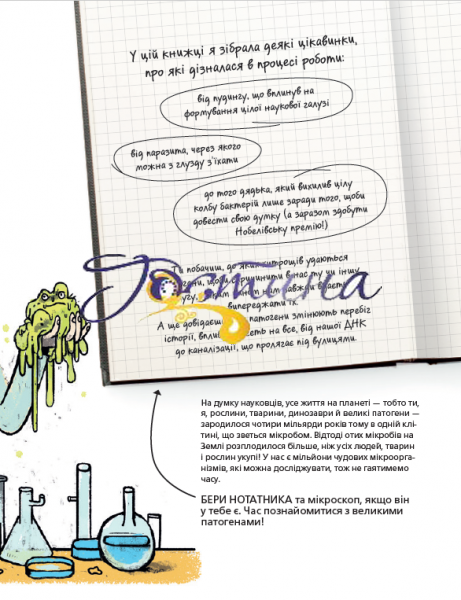 У цій книжці я зібрала деякі цікавинки,
про які дізналася в процесі роботи:
від пудингу, що вплинув на
формування цілої наукової галузі
від паразита, через якого
можна з глузду з'їхати
до того дядька, який вихилив цілу
колбу бактерій лише заради того, щоби
довести свою думку (а заразом здобути
Нобелівську премію!)
Ти побачиш, до яких хитрощів удаються
щоби спричинити в нас ту чи іншу
випереджати їх.
А ще довідаєш патогени змінюють перебіг
історії, на все, від нашої ДНК
до каналізації, що пролягає під вулицями.
Родзинка
На думку науковців, усе життя на планеті — тобто ти,
я, рослини, тварини, динозаври й великі патогени —
зародилося чотири мільярди років тому в одній клі-
тині, що зветься мікробом. Відтоді отих мікробів на
Землі розплодилося більше, ніж усіх людей, тварин
і рослин укупі! У нас є мільйони чудових мікроорга-
нізмів, які можна досліджувати, тож не гаятимемо
часу.
БЕРИ НОТАТНИКА та мікроскоп, якщо він
у тебе є. Час познайомитися з великими
патогенами!